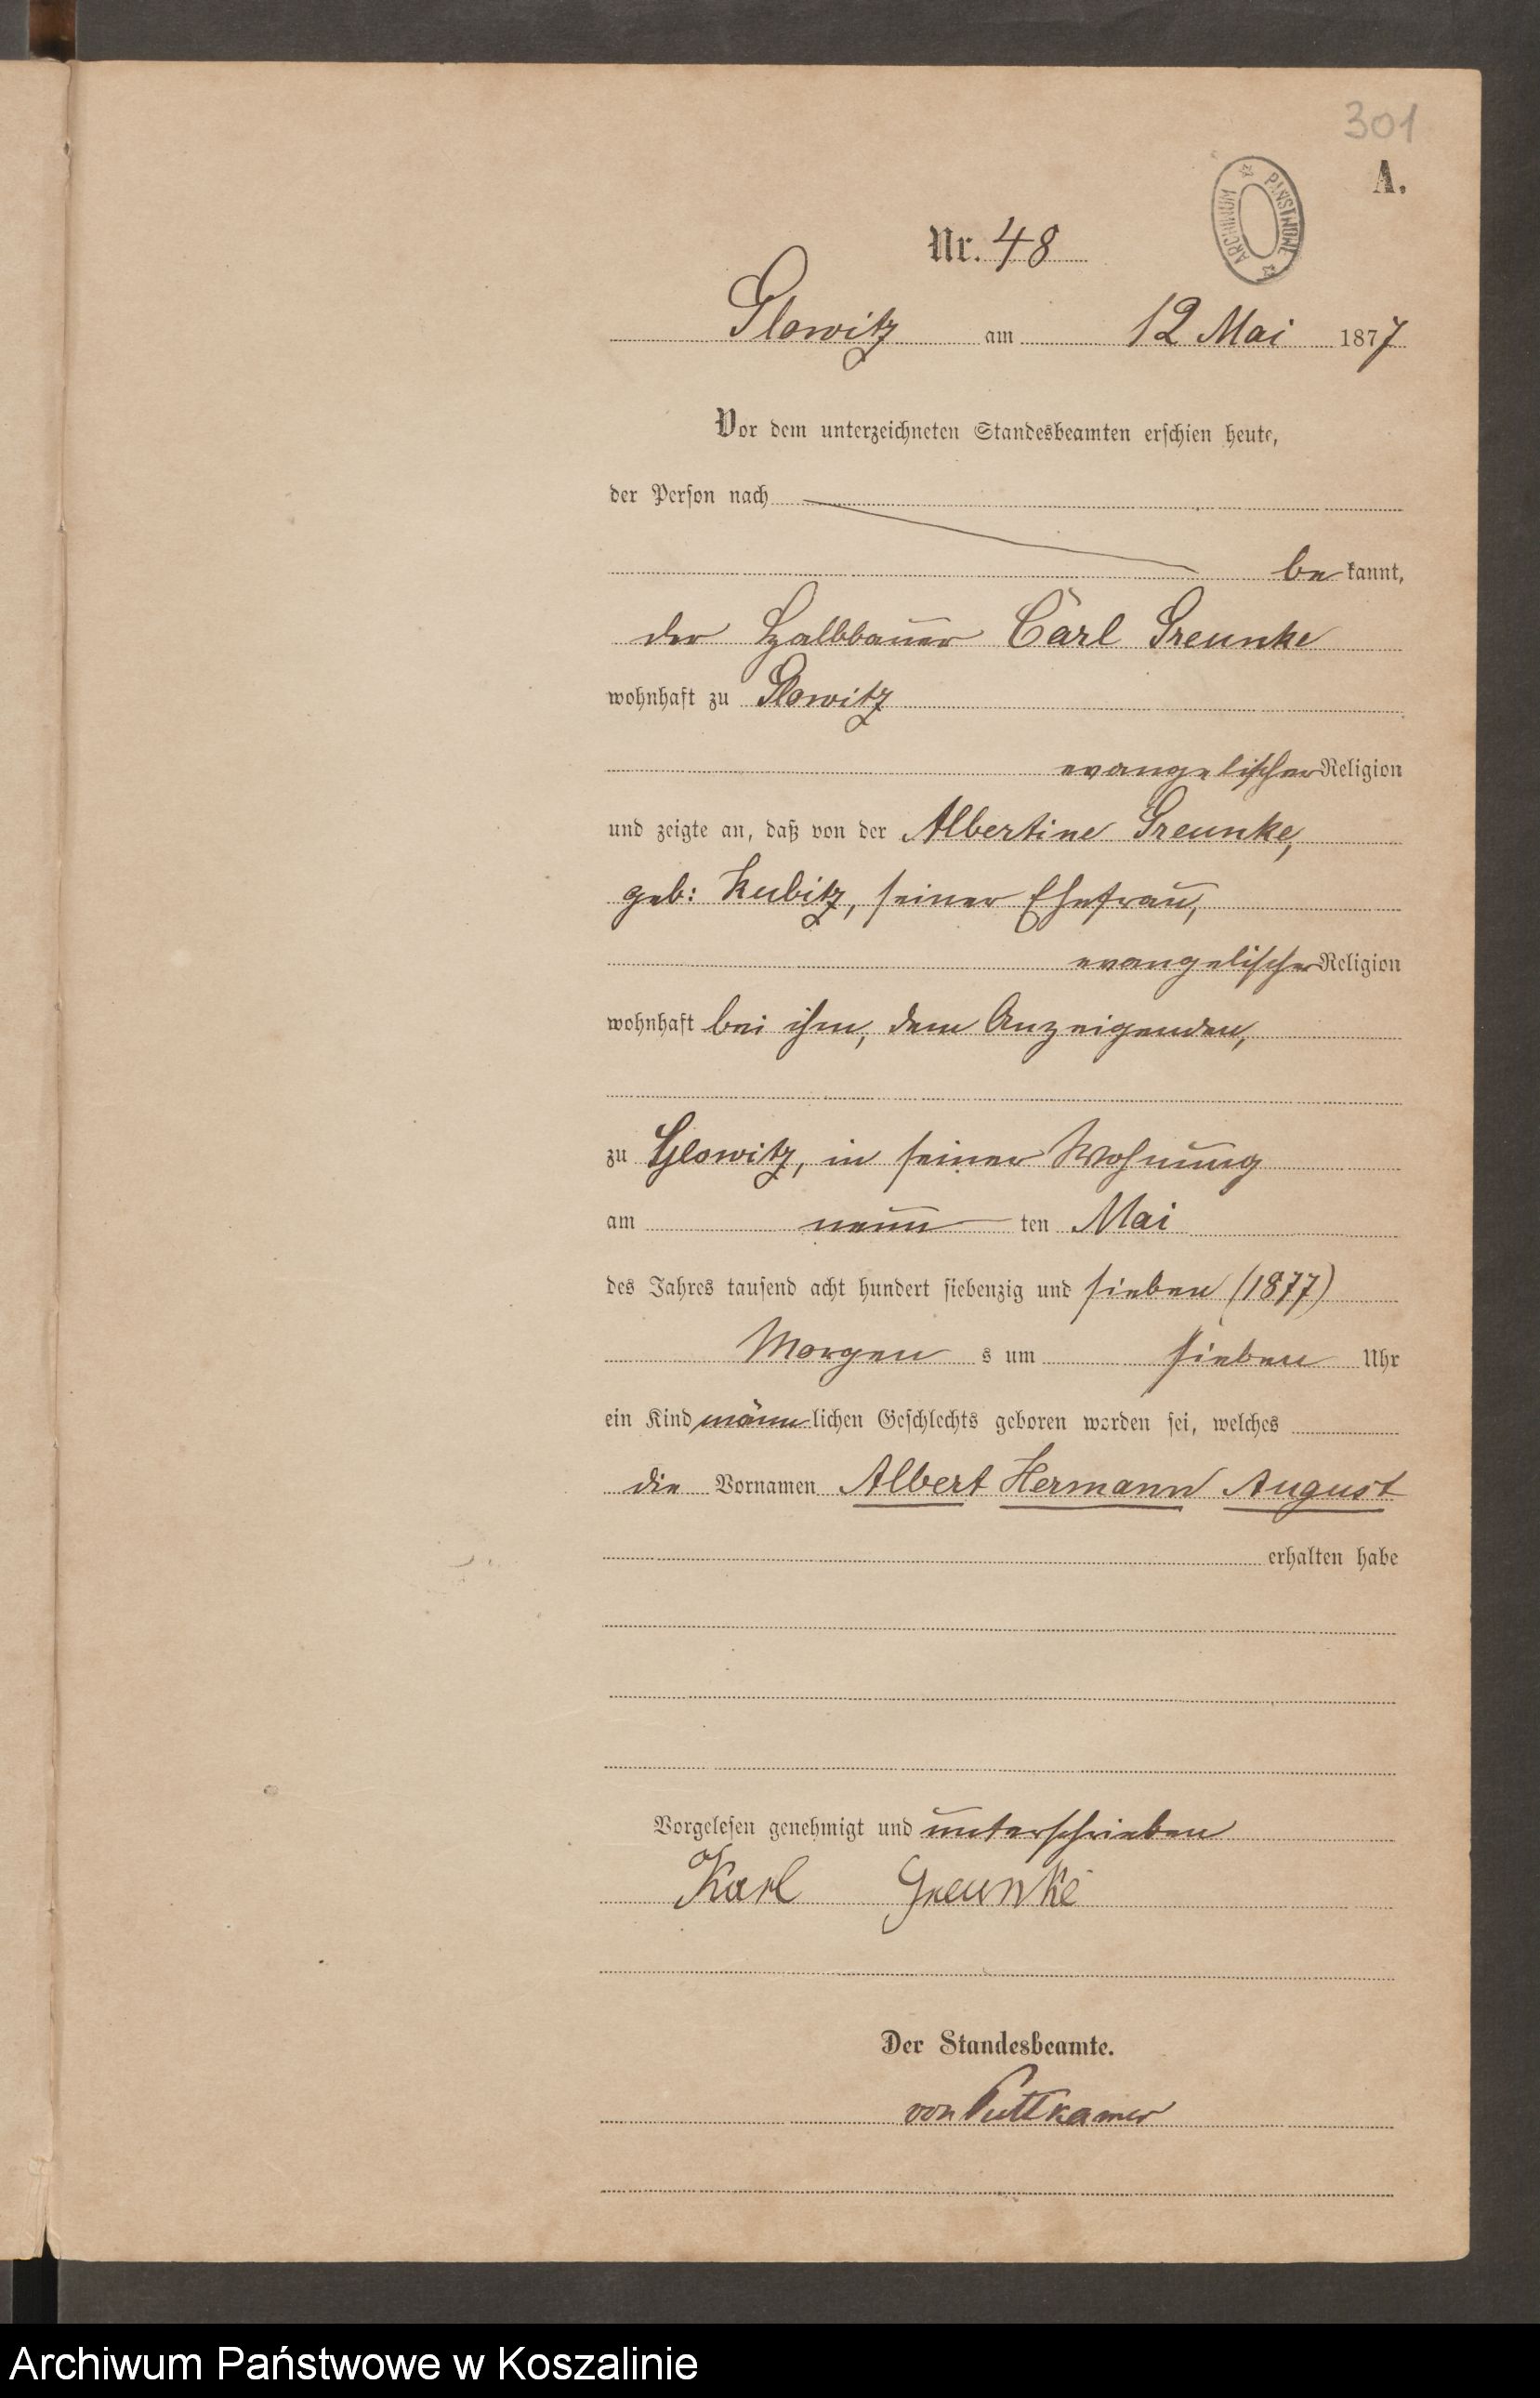 301
A.
ARCHIWUM PAŃSTWOWE
Nr. 48
Glowitz am 12 Mai 1877
Vor dem unterzeichneten Standesbeamten erschien heute,
der Person nach
be kannt,
der Halbbauer Carl Greunke
wohnhaft zu Glowitz
evangelischer Religion
und zeigte an, daß von der Albertine Greunke,
geb: Kubitz, seiner Ehefrau,
evangelischer Religion
wohnhaft bei ihm, dem Anzeigenden,
zu Glowitz, in seiner Wohnung
am neun ten Mai
des Jahres tausend acht hundert siebenzig und sieben (1877)
Morgen s um sieben Uhr
ein Kind männlichen Geschlechts geboren worden sei, welches
die Vornamen Albert Hermann August
erhalten habe
Vorgelesen genehmigt und unterschrieben
Karl Greunke
Der Standesbeamte.
von Puttkamer
Archiwum Państwowe w Koszalinie